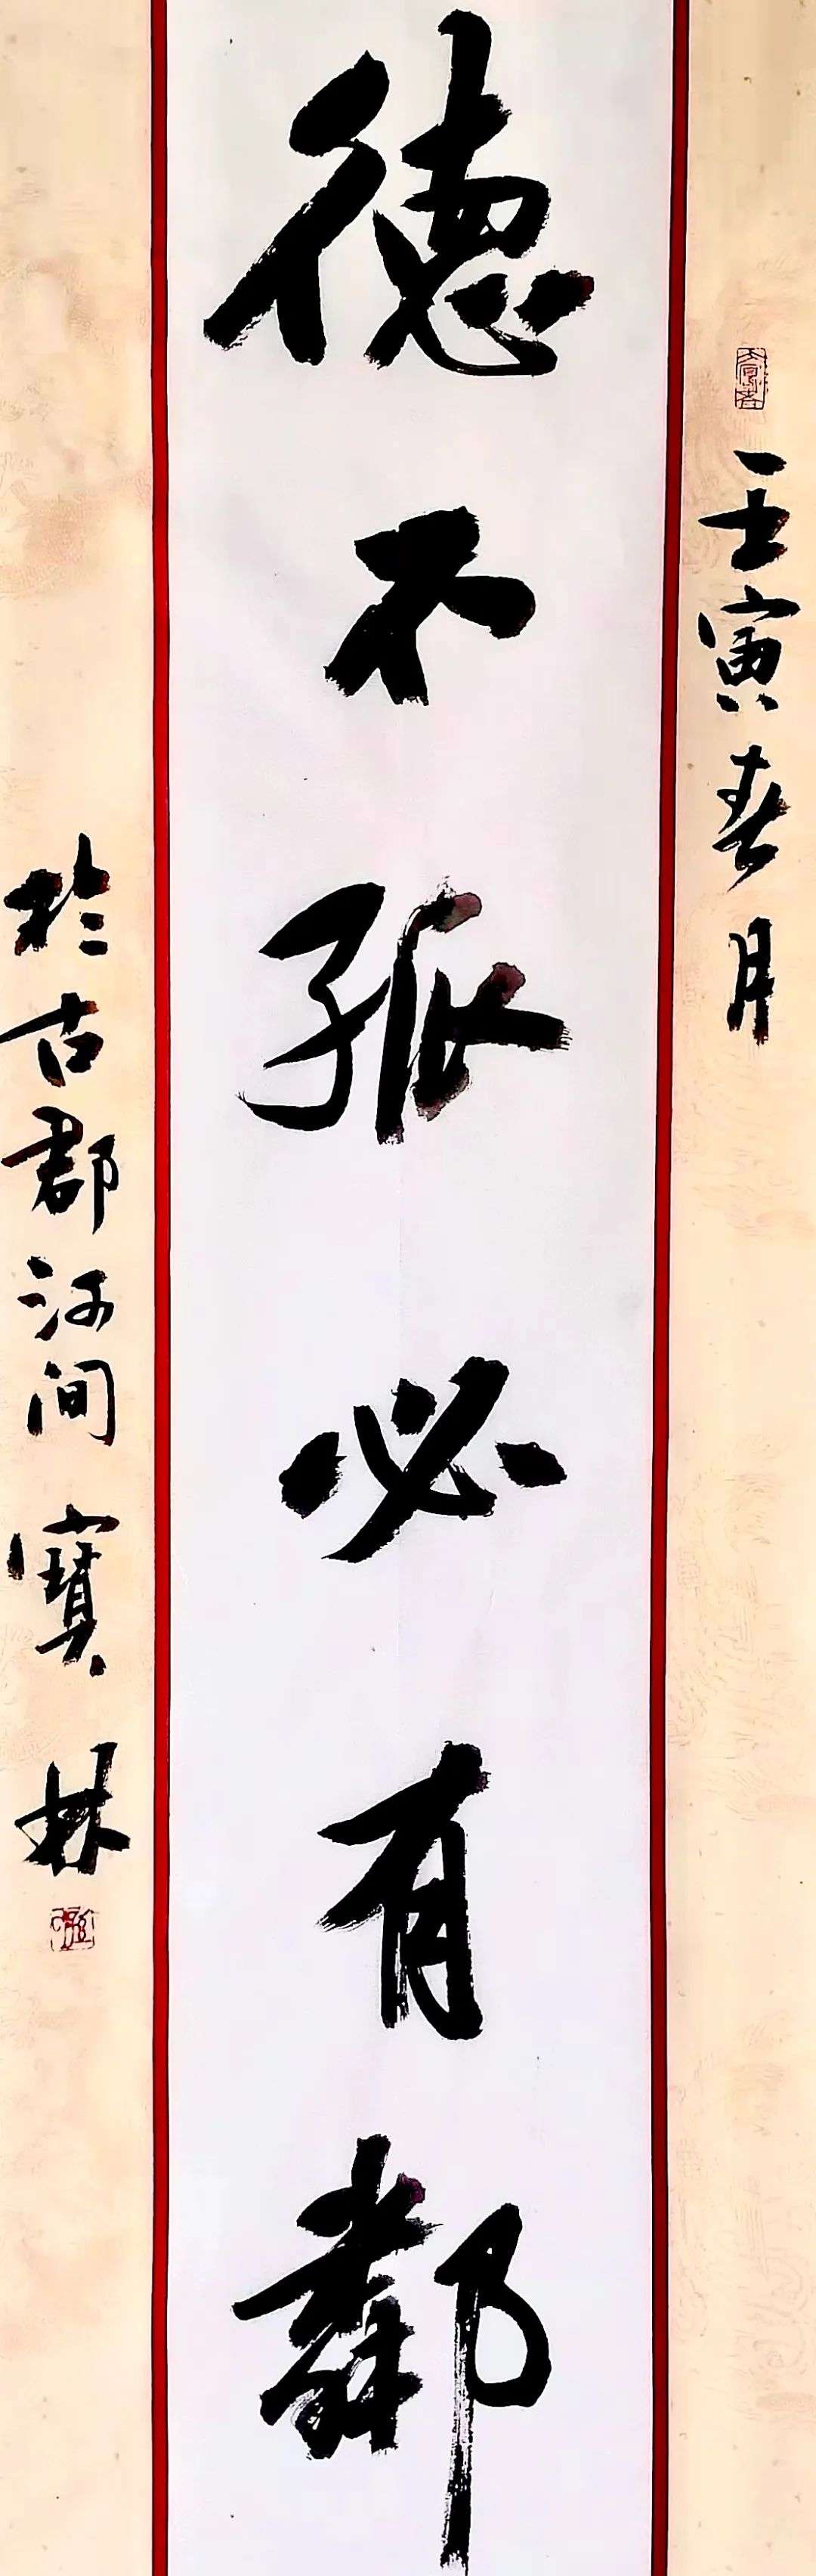 壬寅春月
德不孤必有鄰
於古郡河间寶林